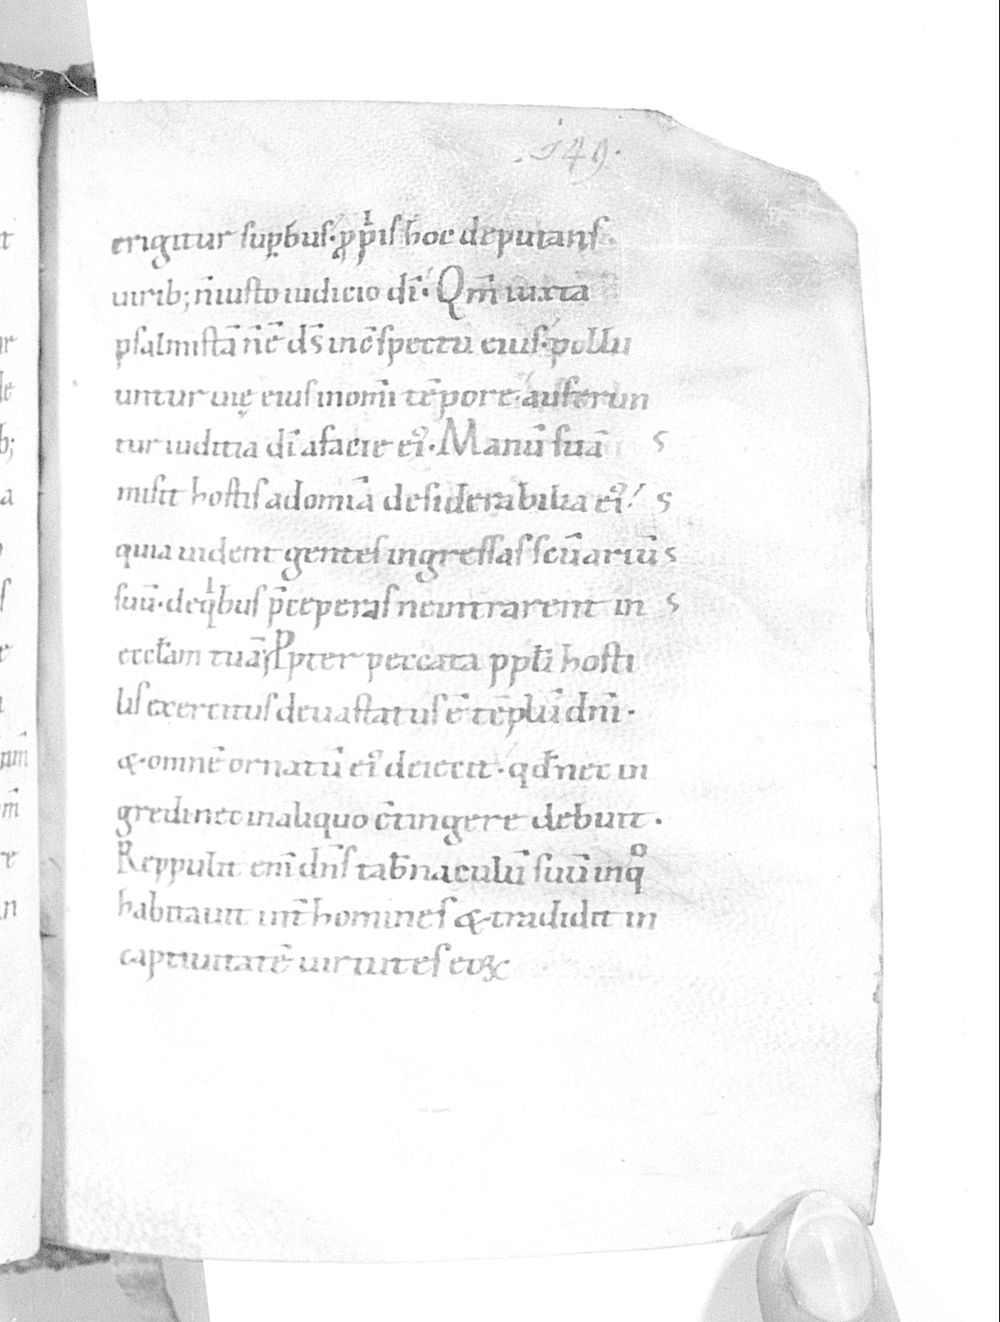 .149.
erigitur supbus. ꝓp̍is hoc deputans.
uirib; n̄ iusto iudicio dī. Qm̄ iuxta
psalmistā n̄ ē ds̄ in c̄spectu eius. pollu
untur uię eius in om̄i tēpore. auferun
tur iuditia dī a facie ei᾿. Manū suā
misit hostis ad om̄ia desiderabilia ei᾿
quia uident gentes ingressas sc̄uariū
suū. de q̍bus p̄ceperas ne intrarent in
eccl̄am tuā; Ppter peccata ppl̄i hosti
lis exercitus deuastatus ē tēplū dn̄i.
& omnē ornatū ei᾿ deiecit. qd̄ nec in
gredi nec in aliquo c̄tingere debuit.
Reppulit eni dn̄s tab̄naculū suū in qͦ
habitauit int̄ homines & tradidit in
captiuitatē uirtutes eoꝝ